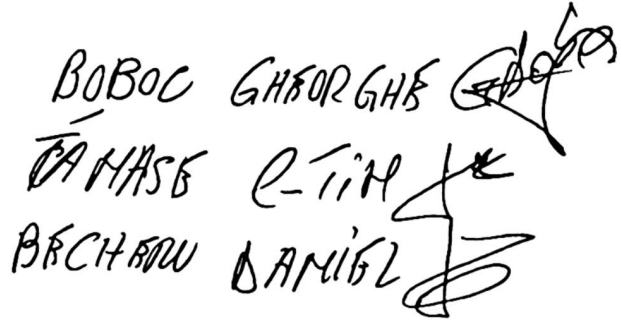 BOBOC GHEORGHE
TĂNASE C-TIN
BECHERU DANIEL